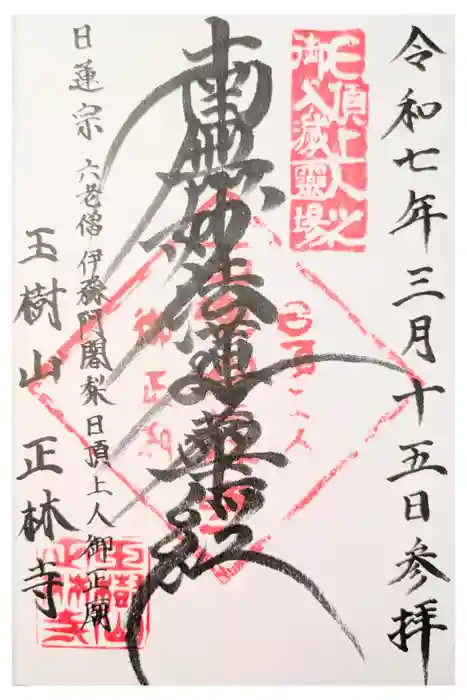 令和七年三月十五日参拝
日頂上人之
御入滅霊場
南無妙法蓮華経
日蓮宗 六老僧 伊豫阿闍梨日頂上人御正廟
玉樹山 正林寺
玉樹山
正林寺